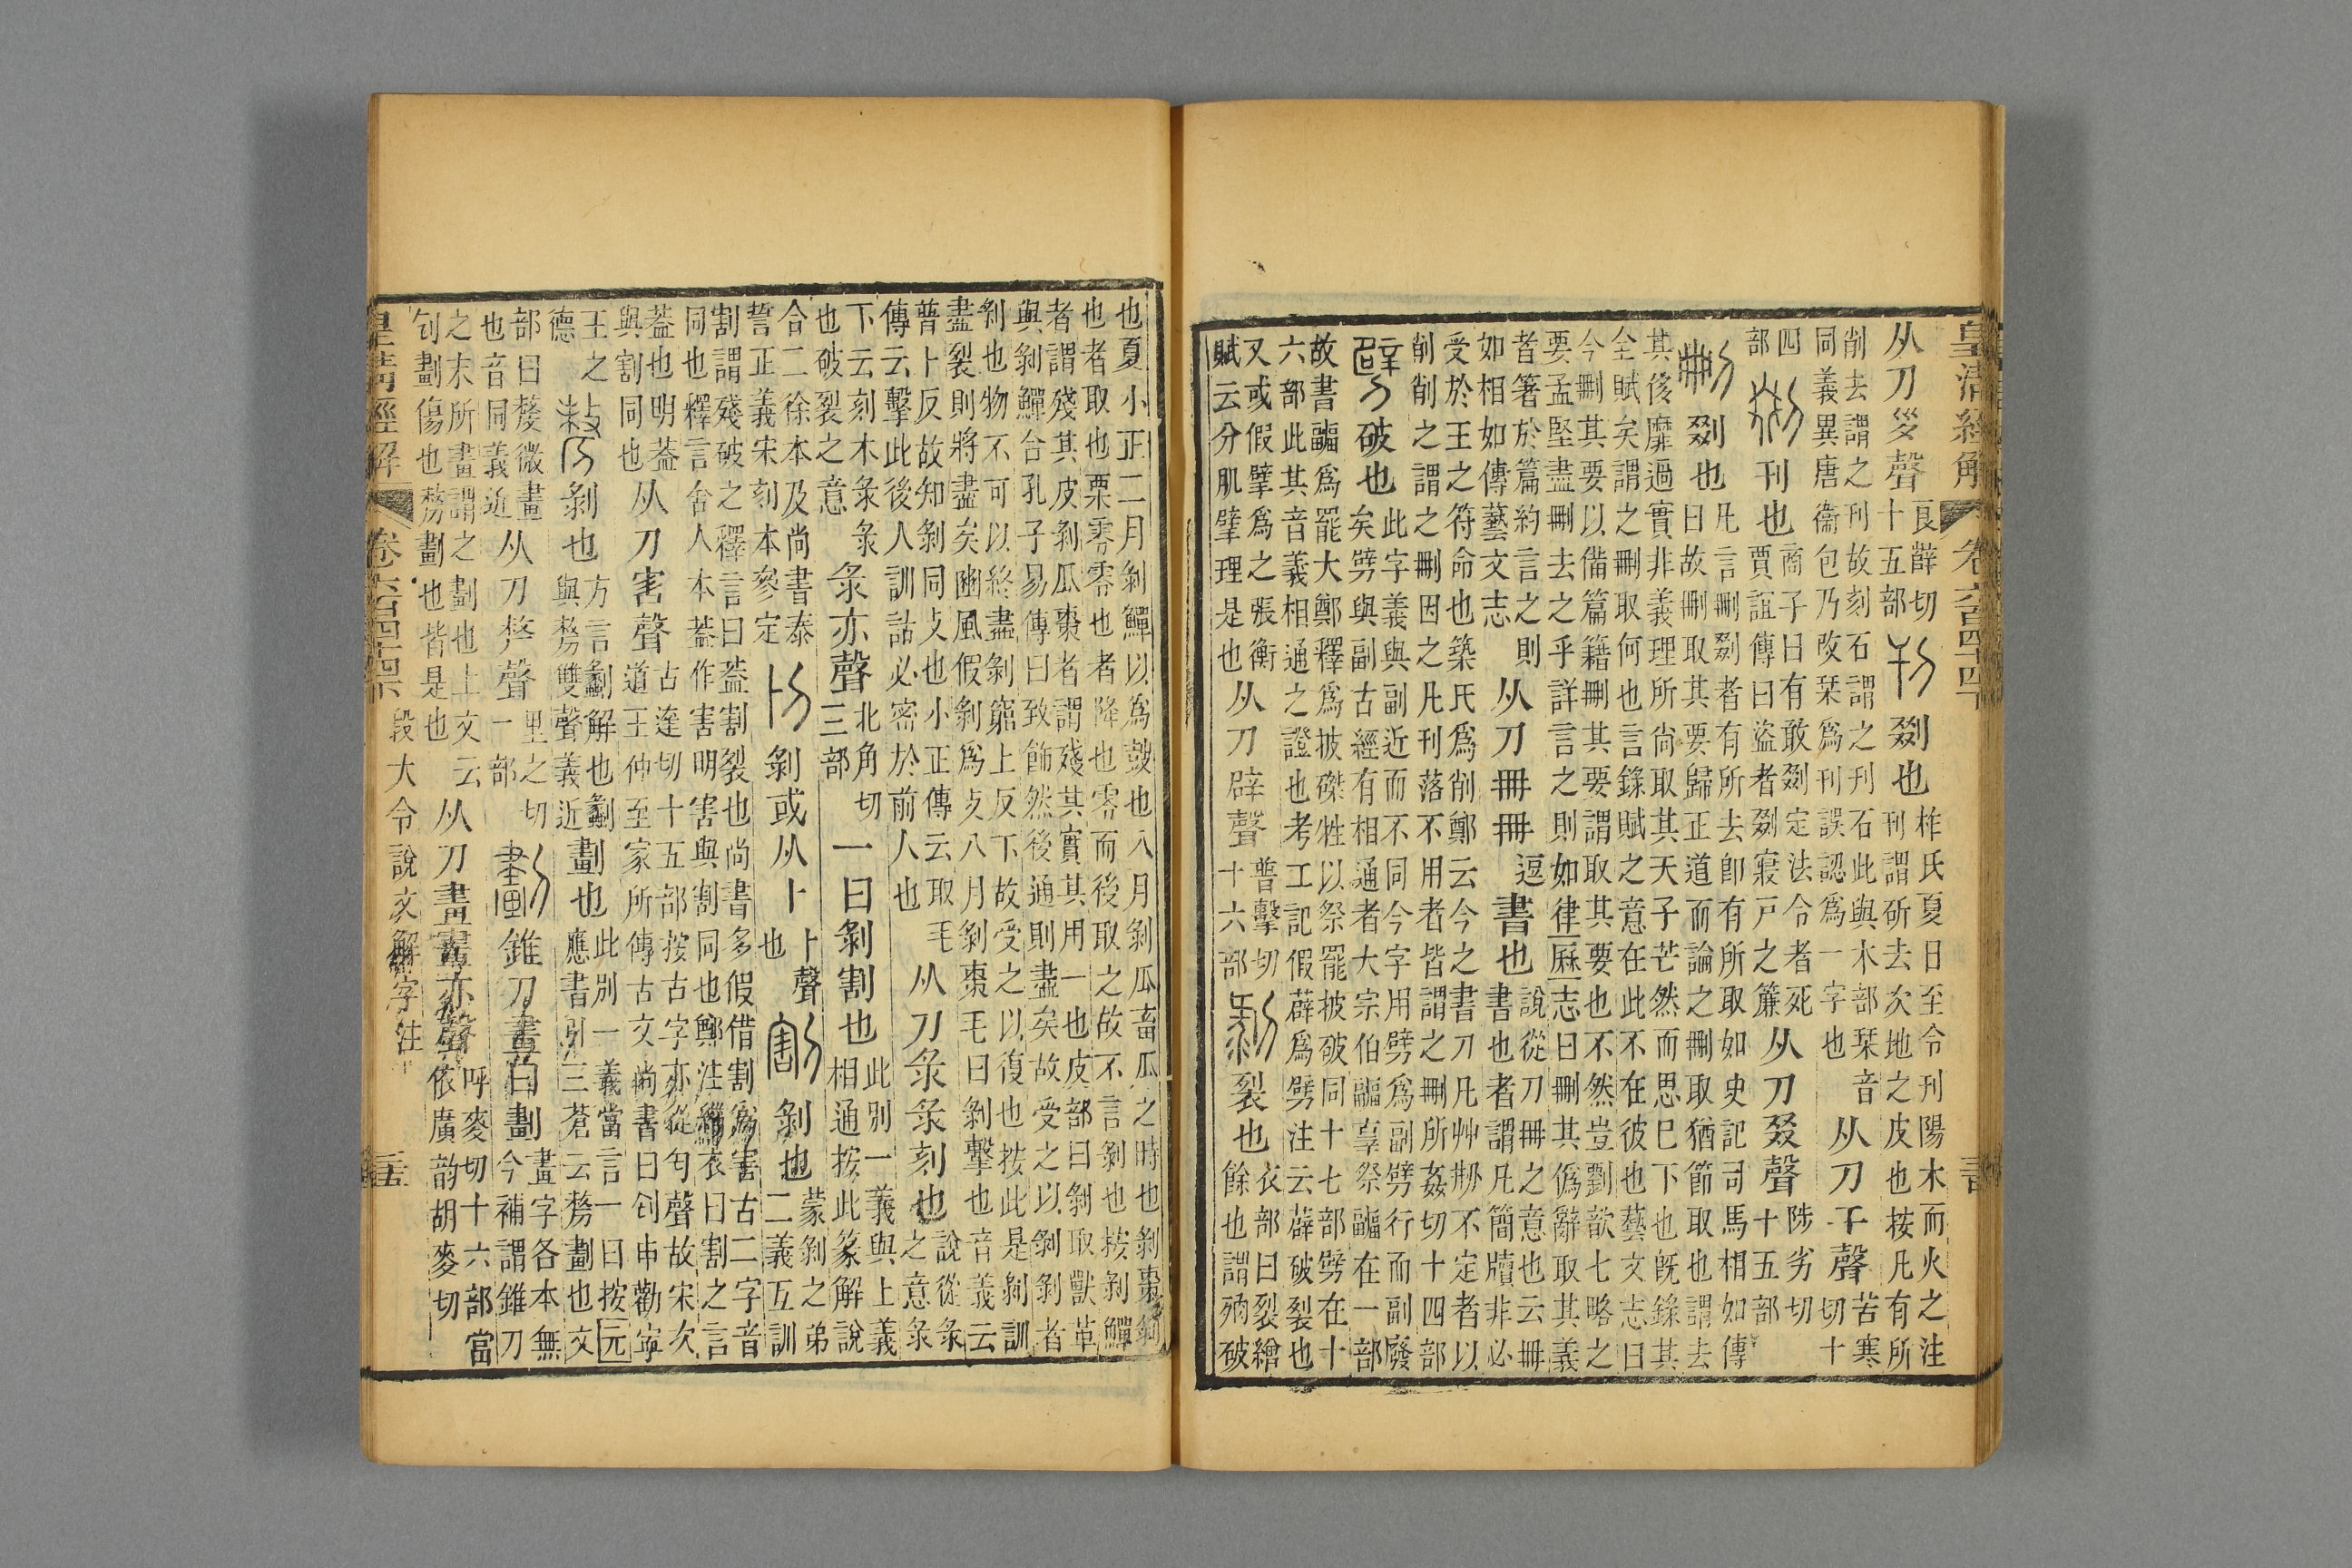 皇清經解 卷六百四十四
从刀𡿪聲良薛切十五部刊剟也柞氏夏日至令刊陽木而火之注刊謂斫去次地之皮也按凡有所
削去謂之刊故刻石謂之刊石此與木部栞音同義異唐衞包乃改栞爲刊誤認爲一字也从刀干聲苦寒切十
四部剟刊也商子曰有敢剟定法令者死賈誼傳曰盜者剟寢戶之簾从刀叕聲陟劣切十五部
刪剟也凡言刪剟者有所去卽有所取如史記司馬相如傳曰故刪取其要歸正道而論之刪取猶節取也謂去
其侈靡過實非義理所尙取其天子芒然而思巳下也旣錄其全賦矣謂之刪取何也言錄賦之意在此不在彼也藝文志曰
今刪其要以備篇籍刪其要謂取其要也不然豈劉歆七略之要孟堅盡刪去之乎詳言之則如律厤志曰刪其僞辭取其義
者箸於篇約言之則如相如傳藝文志从刀冊冊逗書也說從刀冊之意也云冊書也者謂凡簡牘非必
受於王之符命也築氏爲削鄭云今之書刀凡艸刱不定者以削削之謂之刪因之凡刊落不用者皆謂之刪所姦切十四部
劈破也此字義與副近而不同今字用劈爲副劈行而副廢矣劈與副古經有相通者大宗伯疈辜祭疈在一部
故書疈爲罷大鄭釋爲披磔牲以祭罷披破同十七部劈在十六部此其音義相通之證也考工記假薜爲劈注云薜破裂也
又或假擘爲之張衡賦云分肌擘理是也从刀辟聲普擊切十六部剝裂也衣部曰裂繒餘也謂殘破
也夏小正二月剝鱓以爲鼓也八月剝瓜畜瓜之時也剝棗剝也者取也栗零零也者降也零而後取之故不言剝也按剝鱓
者謂殘其皮剝瓜棗者謂殘其實其用一也皮部曰剝取獸革與剝鱓合孔子易傳曰致飾然後通則盡矣故受之以剝剝者
剝也物不可以終盡剝窮上反下故受之以復也按此是剝訓盡裂則將盡矣豳風假剝爲攴八月剝棗毛曰剝擊也音義云
普卜反故知剝同攴也小正傳云取毛傳云擊此後人訓詁必密於前人也从刀彔彔刻也說從彔之意彔
下云刻木彔彔也破裂之意彔亦聲北角切三部一曰剝割也此別一義與上義相通按此篆解說
合二徐本及尚書泰誓正義宋刻本參定㓟剝或从卜卜聲也割剝也蒙剝之弟二義互訓
割謂殘破之釋言曰葢割裂也尚書多假借割爲害古二字音同也釋言舍人本葢作害明害與割同也鄭注緇衣曰割之言
葢也明葢與割同也从刀害聲古達切十五部按古字亦從匄聲故宋次道王仲至家所傳古文尚書曰刨申勸寧
王之德剺剝也方言劙解也劙與剺雙聲義近劃也此別一義當言一曰按元應書引三蒼云剺劃也文
部曰嫠微畫也音同義近从刀𠩺聲里之切一部劃錐刀畫曰劃畫字各本無今補謂錐刀
之末所畫謂之劃也上文云刨劃傷也剺劃也皆是也从刀畫畫亦聲呼麥切十六部當依廣韵胡麥切
皇清經解 卷六百四十四 段大令說文解字注 三五